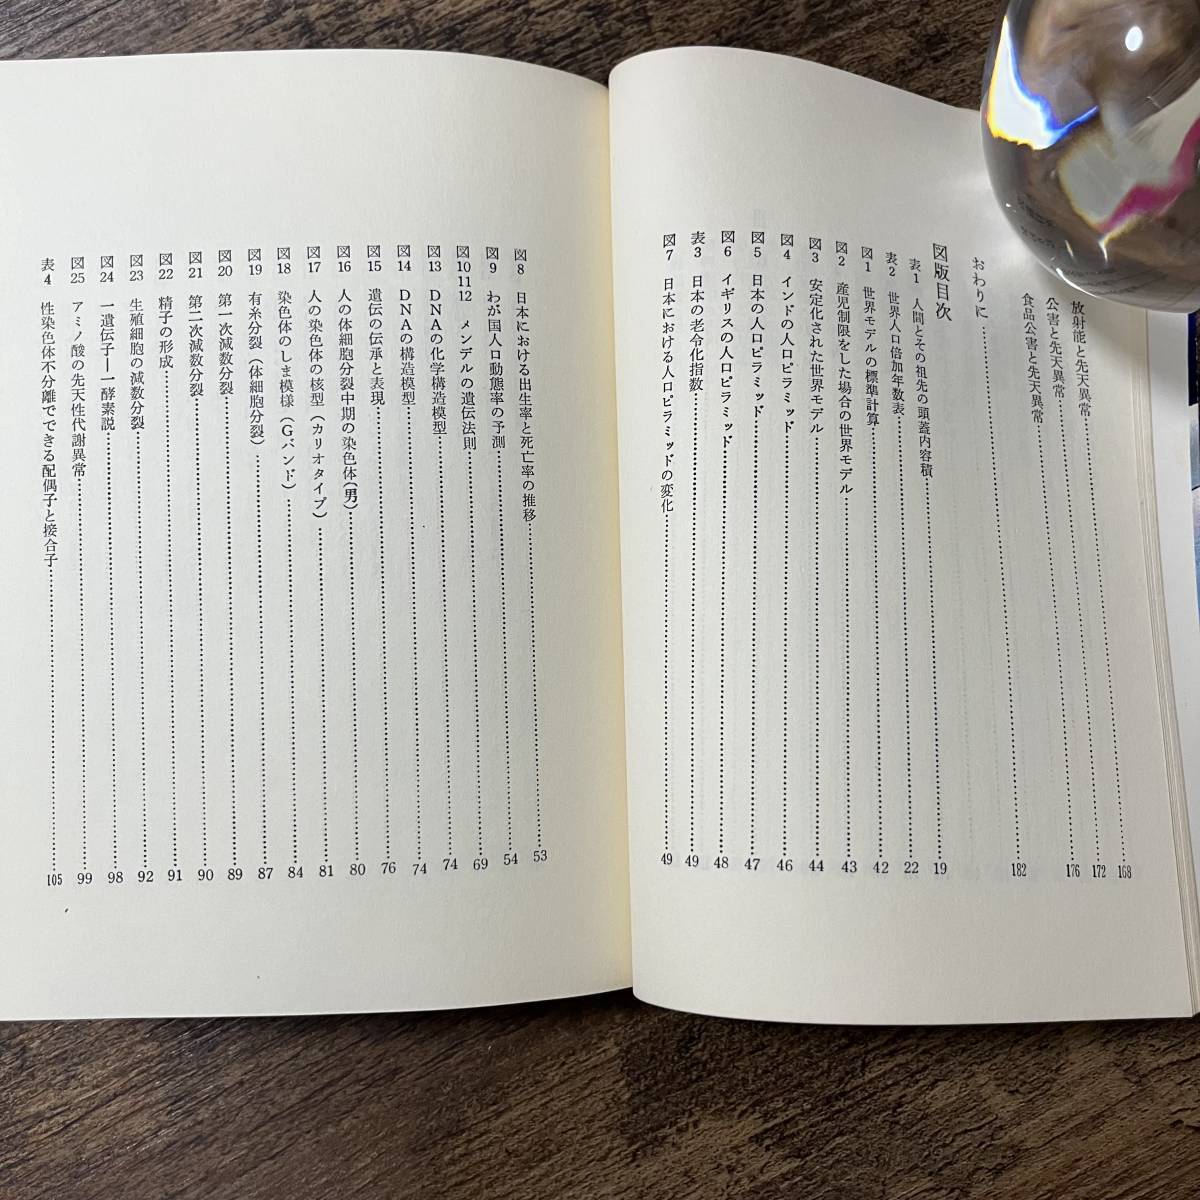 放射能と先天異常……168
公害と先天異常……172
食品公害と先天異常……176
おわりに……182
図版目次
表1 人間とその祖先の頭蓋内容積……19
表2 世界人口倍加年数表……22
図1 世界モデルの標準計算……42
図2 産児制限をした場合の世界モデル……43
図3 安定化された世界モデル……44
図4 インドの人口ピラミッド……46
図5 日本の人口ピラミッド……47
図6 イギリスの人口ピラミッド……48
表3 日本の老令化指数……49
図7 日本における人口ピラミッドの変化……49
図8 日本における出生率と死亡率の推移……53
図9 わが国人口動態率の予測……54
図10 11 12 メンデルの遺伝法則……69
図13 DNAの化学構造模型……74
図14 DNAの構造模型……74
図15 遺伝の伝承と表現……76
図16 人の体細胞分裂中期の染色体(男)……80
図17 人の染色体の核型(カリオタイプ)……81
図18 染色体のしま模様(Gバンド)……84
図19 有糸分裂(体細胞分裂)……87
図20 第一次減数分裂……89
図21 第二次減数分裂……90
図22 精子の形成……91
図23 生殖細胞の減数分裂……92
図24 一遺伝子—一酵素説……98
図25 アミノ酸の先天性代謝異常……99
表4 性染色体不分離でできる配偶子と接合子……105